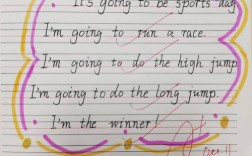 It's going to be sports day
I'm going to run a race.
I'm going to do the high jump
I'm going to do the long jump.
I'm the winner!